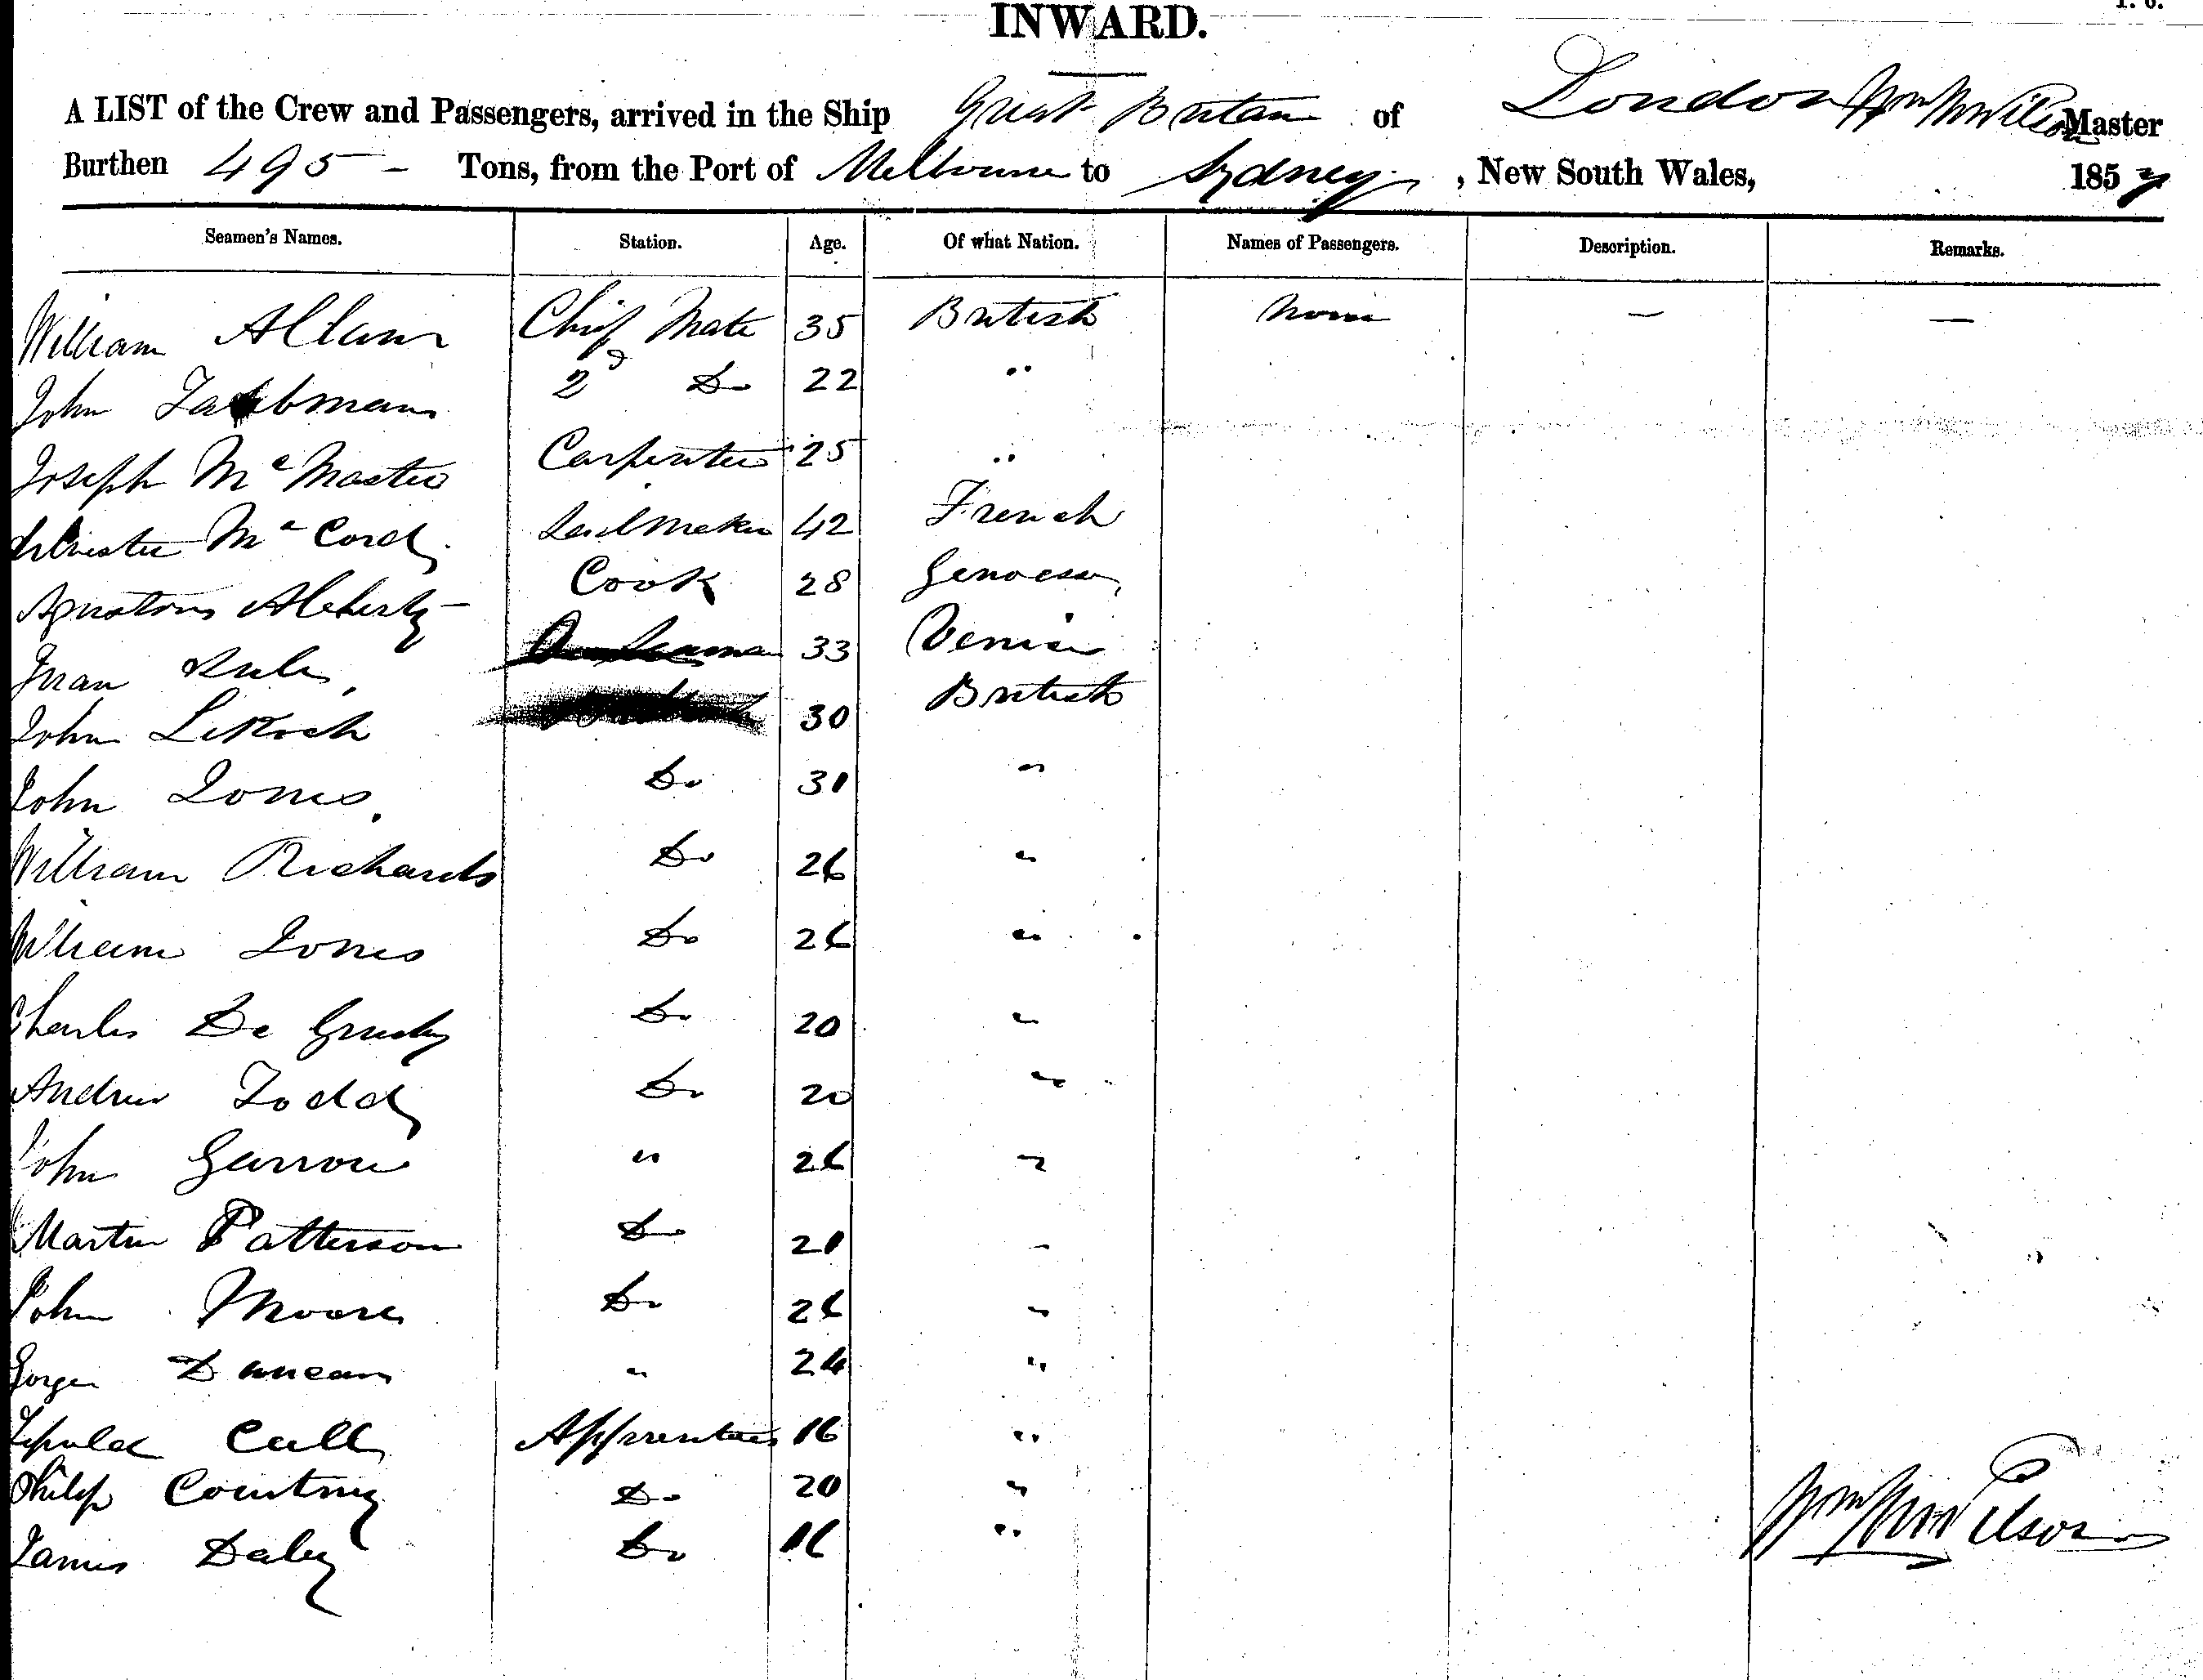 INWARD.
A LIST of the Crew and Passengers, arrived in the Ship Great Britain of London Wm Wilson Master
Burthen 495 — Tons, from the Port of Melbourne to Sydney, New South Wales, 1857
Seamen's Names. Station. Age. Of what Nation. Names of Passengers. Description. Remarks.
William Allan Chief Mate 35 British None — —
John 2d Do 22 "
Joseph McMaster Carpenter 25 "
McCordy Sailmaker 42 French
Cook 28 Genoese
Juan Seaman 33 Venice
John 30 British
John Jones. Do 31 "
William Richards Do 26 "
William Jones Do 26 "
Charles De Do 20 "
Andrew Todd Do 20 "
John Garrow " 26 "
Martin Patterson Do 21 "
John Moore Do 26 "
George Duncan " 24 "
Call Apprentices 16 "
Philip Courtney Do 20 "
James Daley Do 16 "
Wm Wilson